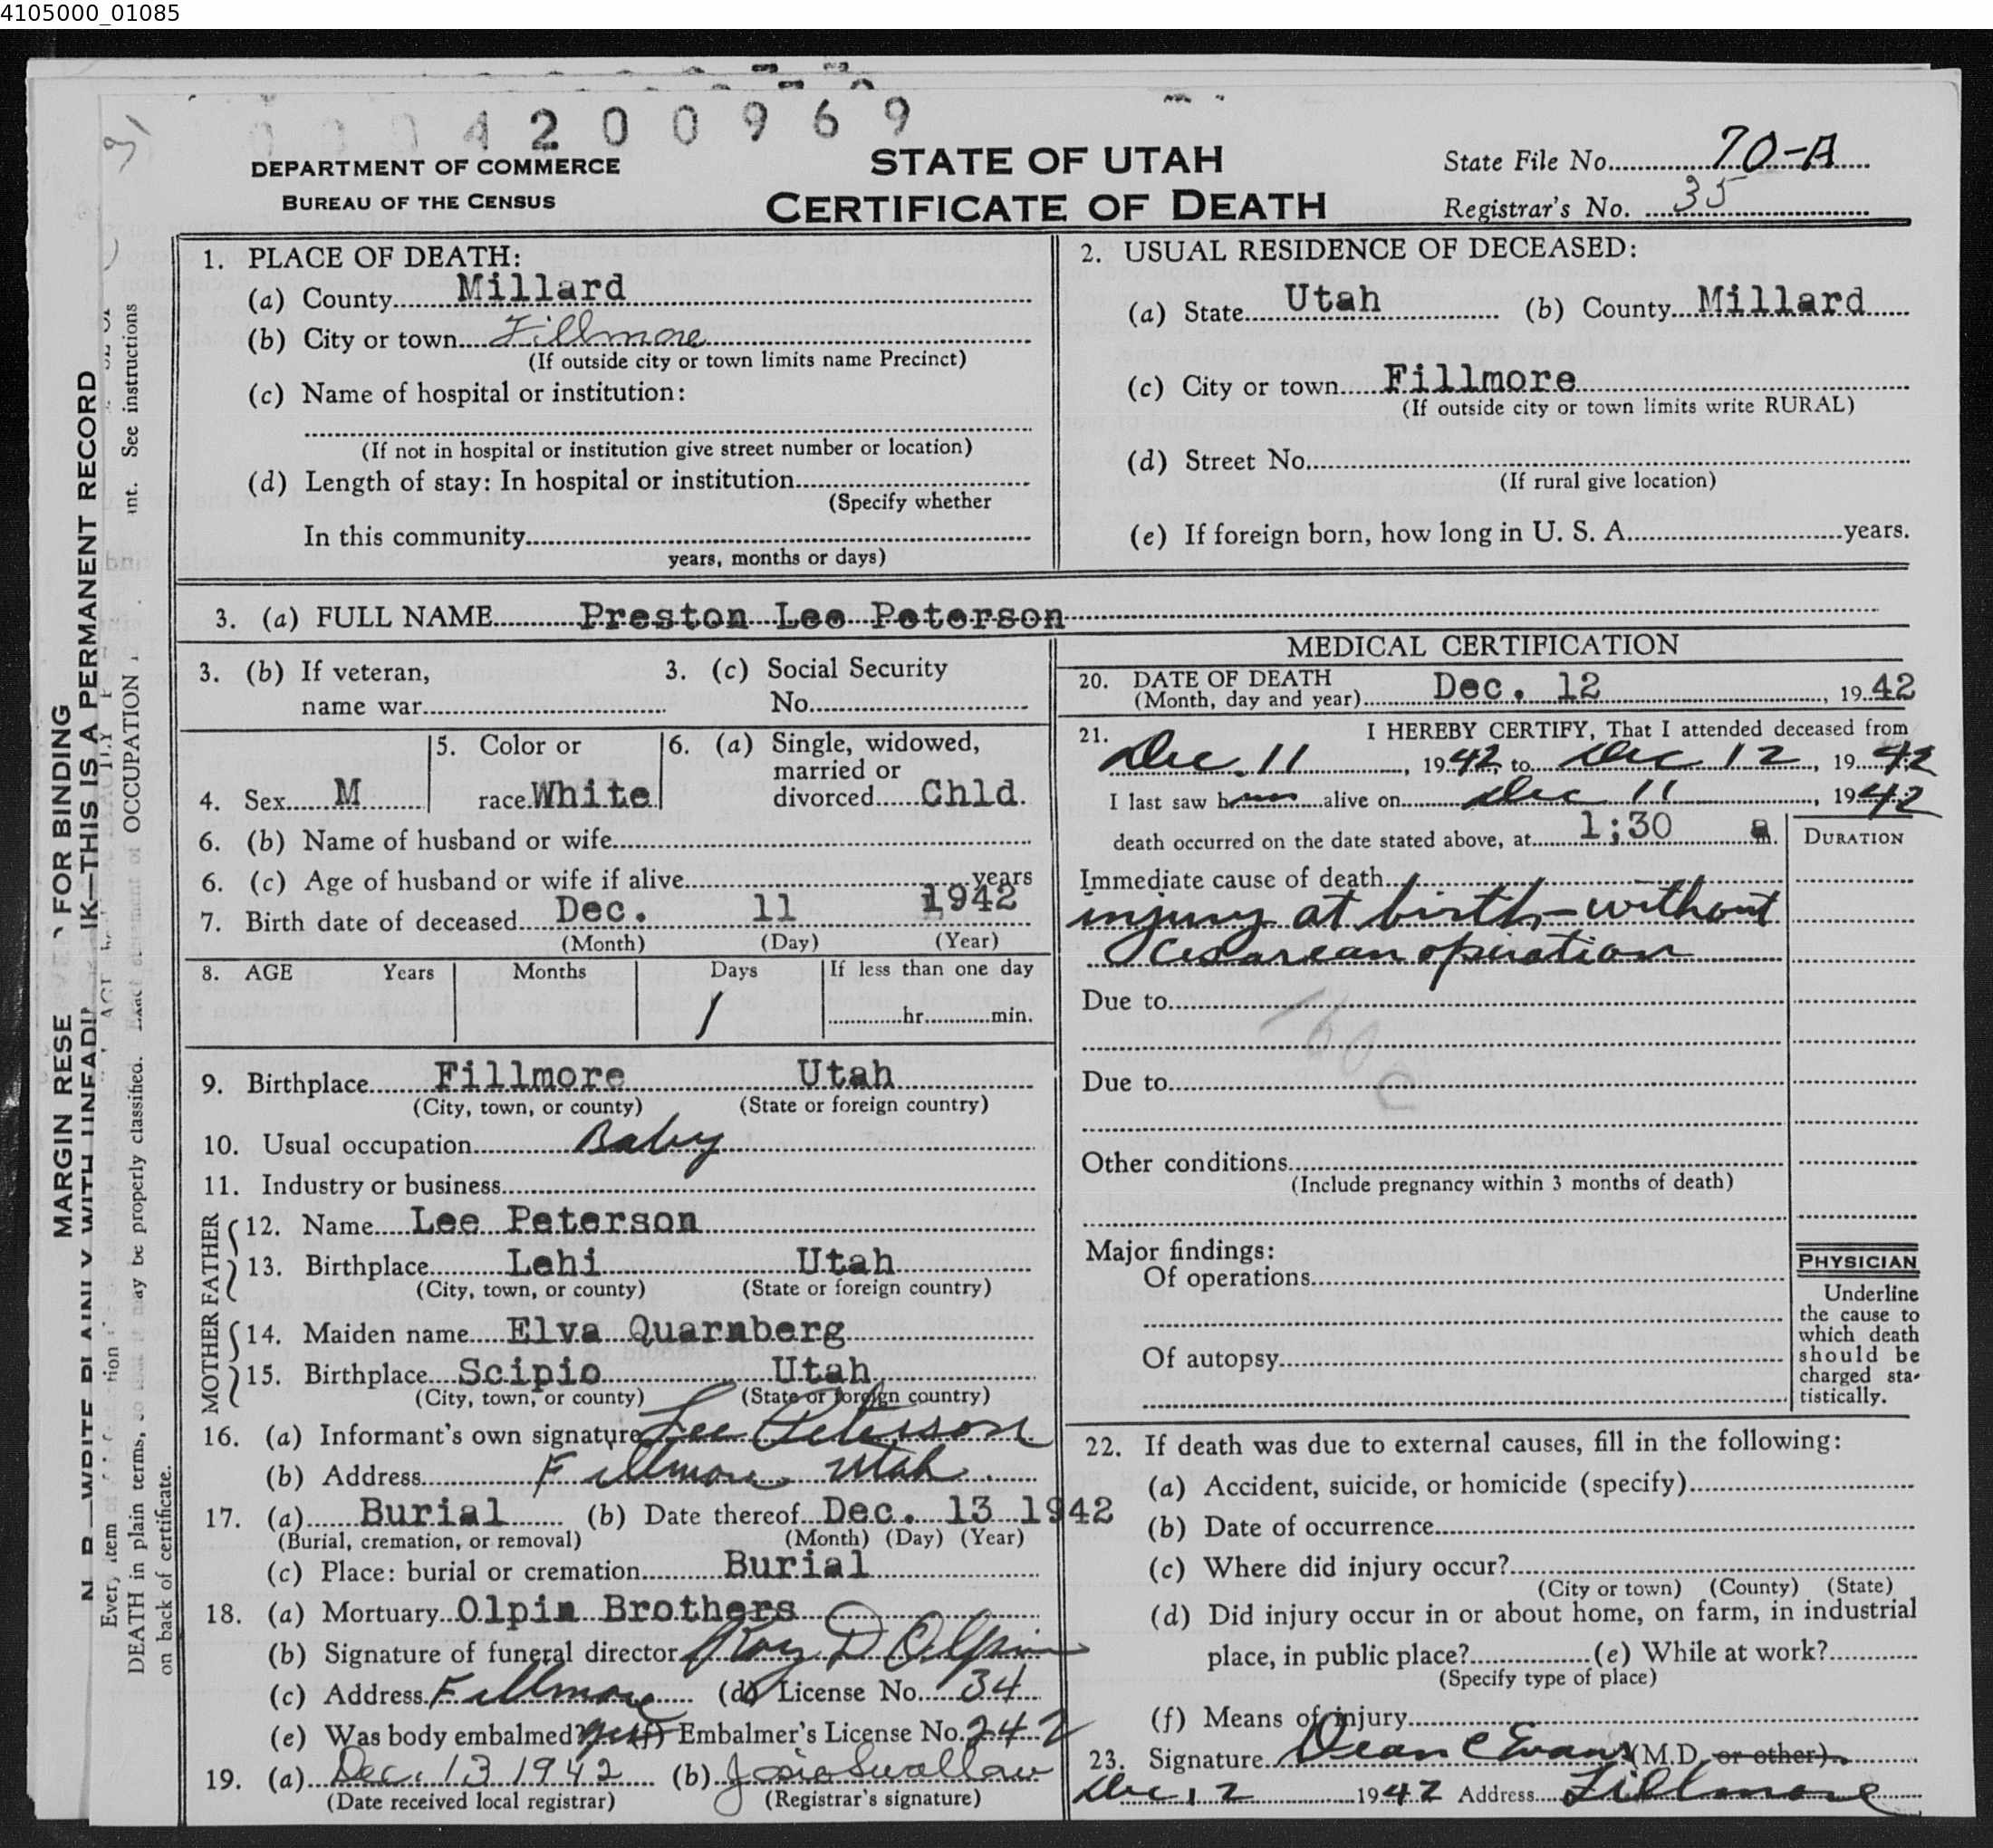 4105000_01085
4200969
DEPARTMENT OF COMMERCE
BUREAU OF THE CENSUS
STATE OF UTAH
CERTIFICATE OF DEATH
State File No. 70-A
Registrar's No. 35
1. PLACE OF DEATH:
(a) County Millard
(b) City or town Fillmore
(If outside city or town limits name Precinct)
(c) Name of hospital or institution:
(If not in hospital or institution give street number or location)
(d) Length of stay: In hospital or institution
(Specify whether
In this community
years, months or days)
2. USUAL RESIDENCE OF DECEASED:
(a) State Utah (b) County Millard
(c) City or town Fillmore
(If outside city or town limits write RURAL)
(d) Street No.
(If rural give location)
(e) If foreign born, how long in U. S. A. years.
3. (a) FULL NAME Preston Lee Peterson
3. (b) If veteran, 3. (c) Social Security
name war No.
4. Sex M
5. Color or
race White
6. (a) Single, widowed,
married or
divorced Chld.
6. (b) Name of husband or wife
6. (c) Age of husband or wife if alive years
7. Birth date of deceased Dec. 11 1942
(Month) (Day) (Year)
8. AGE Years Months Days If less than one day
1 hr. min.
9. Birthplace Fillmore Utah
(City, town, or county) (State or foreign country)
10. Usual occupation Baby
11. Industry or business
FATHER
12. Name Lee Peterson
13. Birthplace Lehi Utah
(City, town, or county) (State or foreign country)
MOTHER
14. Maiden name Elva Quarnberg
15. Birthplace Scipio Utah
(City, town, or county) (State or foreign country)
16. (a) Informant's own signature Lee Peterson
(b) Address Fillmore Utah.
17. (a) Burial (b) Date thereof Dec. 13 1942
(Burial, cremation, or removal) (Month) (Day) (Year)
(c) Place: burial or cremation Burial
18. (a) Mortuary Olpin Brothers
(b) Signature of funeral director Roy D Olpin
(c) Address Fillmore (d) License No. 34
(e) Was body embalmed? (f) Embalmer's License No. 242
19. (a) Dec. 13 1942 (b) Josie Swallow
(Date received local registrar) (Registrar's signature)
MEDICAL CERTIFICATION
20. DATE OF DEATH
(Month, day and year) Dec. 12, 1942
21. I HEREBY CERTIFY, That I attended deceased from
Dec. 11, 1942, to Dec 12, 1942
I last saw him alive on Dec 11, 1942
death occurred on the date stated above, at 1;30 a m.
DURATION
Immediate cause of death
injury at birth - without
Cesarean operation
Due to
160
c
Due to
Other conditions
(Include pregnancy within 3 months of death)
Major findings:
Of operations
Of autopsy
PHYSICIAN
Underline
the cause to
which death
should be
charged sta-
tistically.
22. If death was due to external causes, fill in the following:
(a) Accident, suicide, or homicide (specify)
(b) Date of occurrence
(c) Where did injury occur?
(City or town) (County) (State)
(d) Did injury occur in or about home, on farm, in industrial
place, in public place? (e) While at work?
(Specify type of place)
(f) Means of injury
23. Signature Dean C Evans (M.D. or other)
Dec 12 1942 Address Fillmore
MARGIN RESE FOR BINDING
IK—THIS IS A PERMANENT RECORD
int. See instructions
OCCUPATION
Every item
DEATH in plain terms, so that it may be properly classified. Exact statement of
on back of certificate.